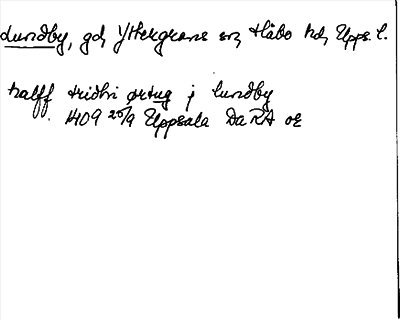 Lundby, gd, Yttergrans sn, Håbo hd, Upps. l.
halff tridhi ørtug j lundby
1409 25/9 Uppsala Da RA or